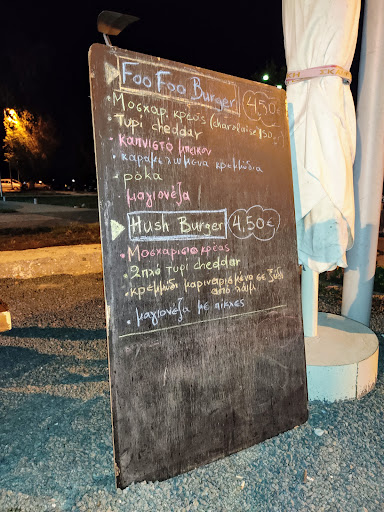 Foo Foo Burger 4,50€
• Μοσχαρ. κρέας (charolaise 150gr)
• Τυρί cheddar
• καπνιστό μπέικον
• καραμελωμένα κρεμμύδια
• ρόκα
• μαγιονέζα
Hush Burger 4,50€
• Μοσχαρίσιο κρέας
• 2πλό τυρί cheddar
• κρεμμύδι μαριναρισμένο σε ξύδι
από λάιμ
• μαγιονέζα με πίκλες